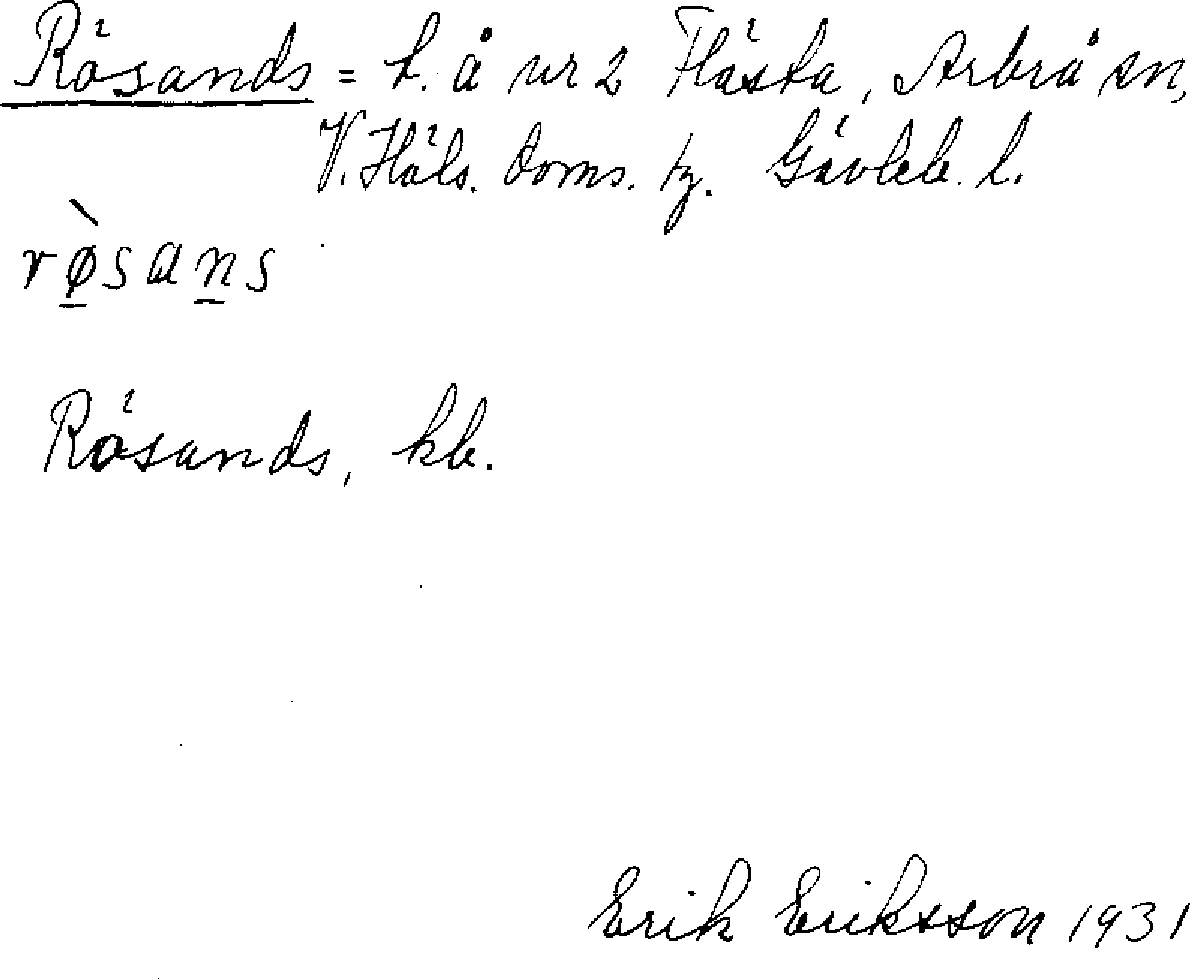 Rösands = h. å nr 2 Flästa, Arbrå sn,
V. Häls. doms. tg. Gävleb. l.
rø̀sans
Rösands, kb.
Erik Eriksson 1931